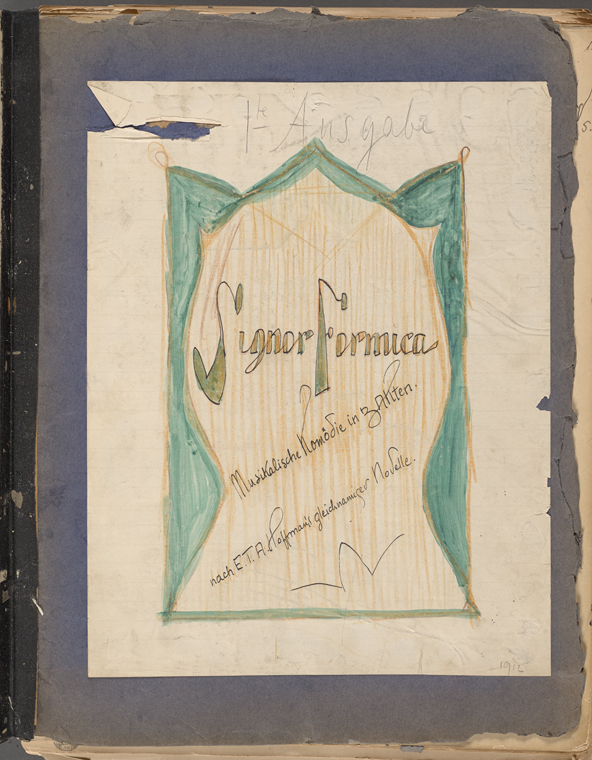 1te Ausgabe
Signor Formica
Musikalische Komödie in 3 Akten.
nach E.T.A. Hoffmann's gleichnamiger Novelle.
1912